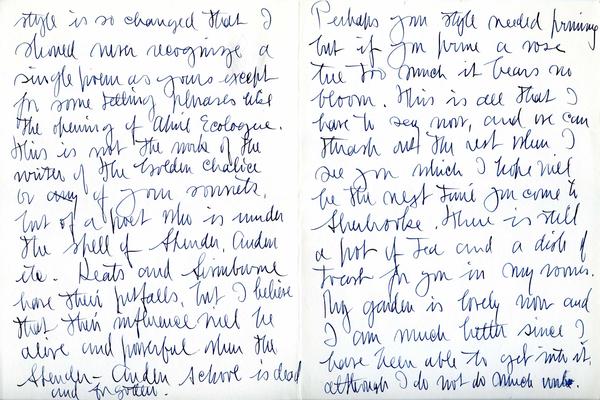 style is so changed that I
should never recognize a
single poem as yours except
for some telling phrases like
the opening of April Eclogue.
This is not the work of the
writer of the Golden Chalice
or any of your sonnets,
but of a poet who is under
the spell of Spender, Auden
etc. Keats and Swinburne
have their pitfalls, but I believe
that their influence will be
alive and powerful when the
Spender-Auden school is dead
and forgotten.
Perhaps your style needed pruning
but if you prune a rose
tree too much it bears no
bloom. This is all that I
have to say now, and we can
thrash out the rest when I
see you which I hope will
be the next time you come to
Sherbrooke. There is still
a pot of tea and a dish of
toast for you in my rooms.
My garden is lovely now and
I am much better since I
have been able to get into it,
although I do not do much work.